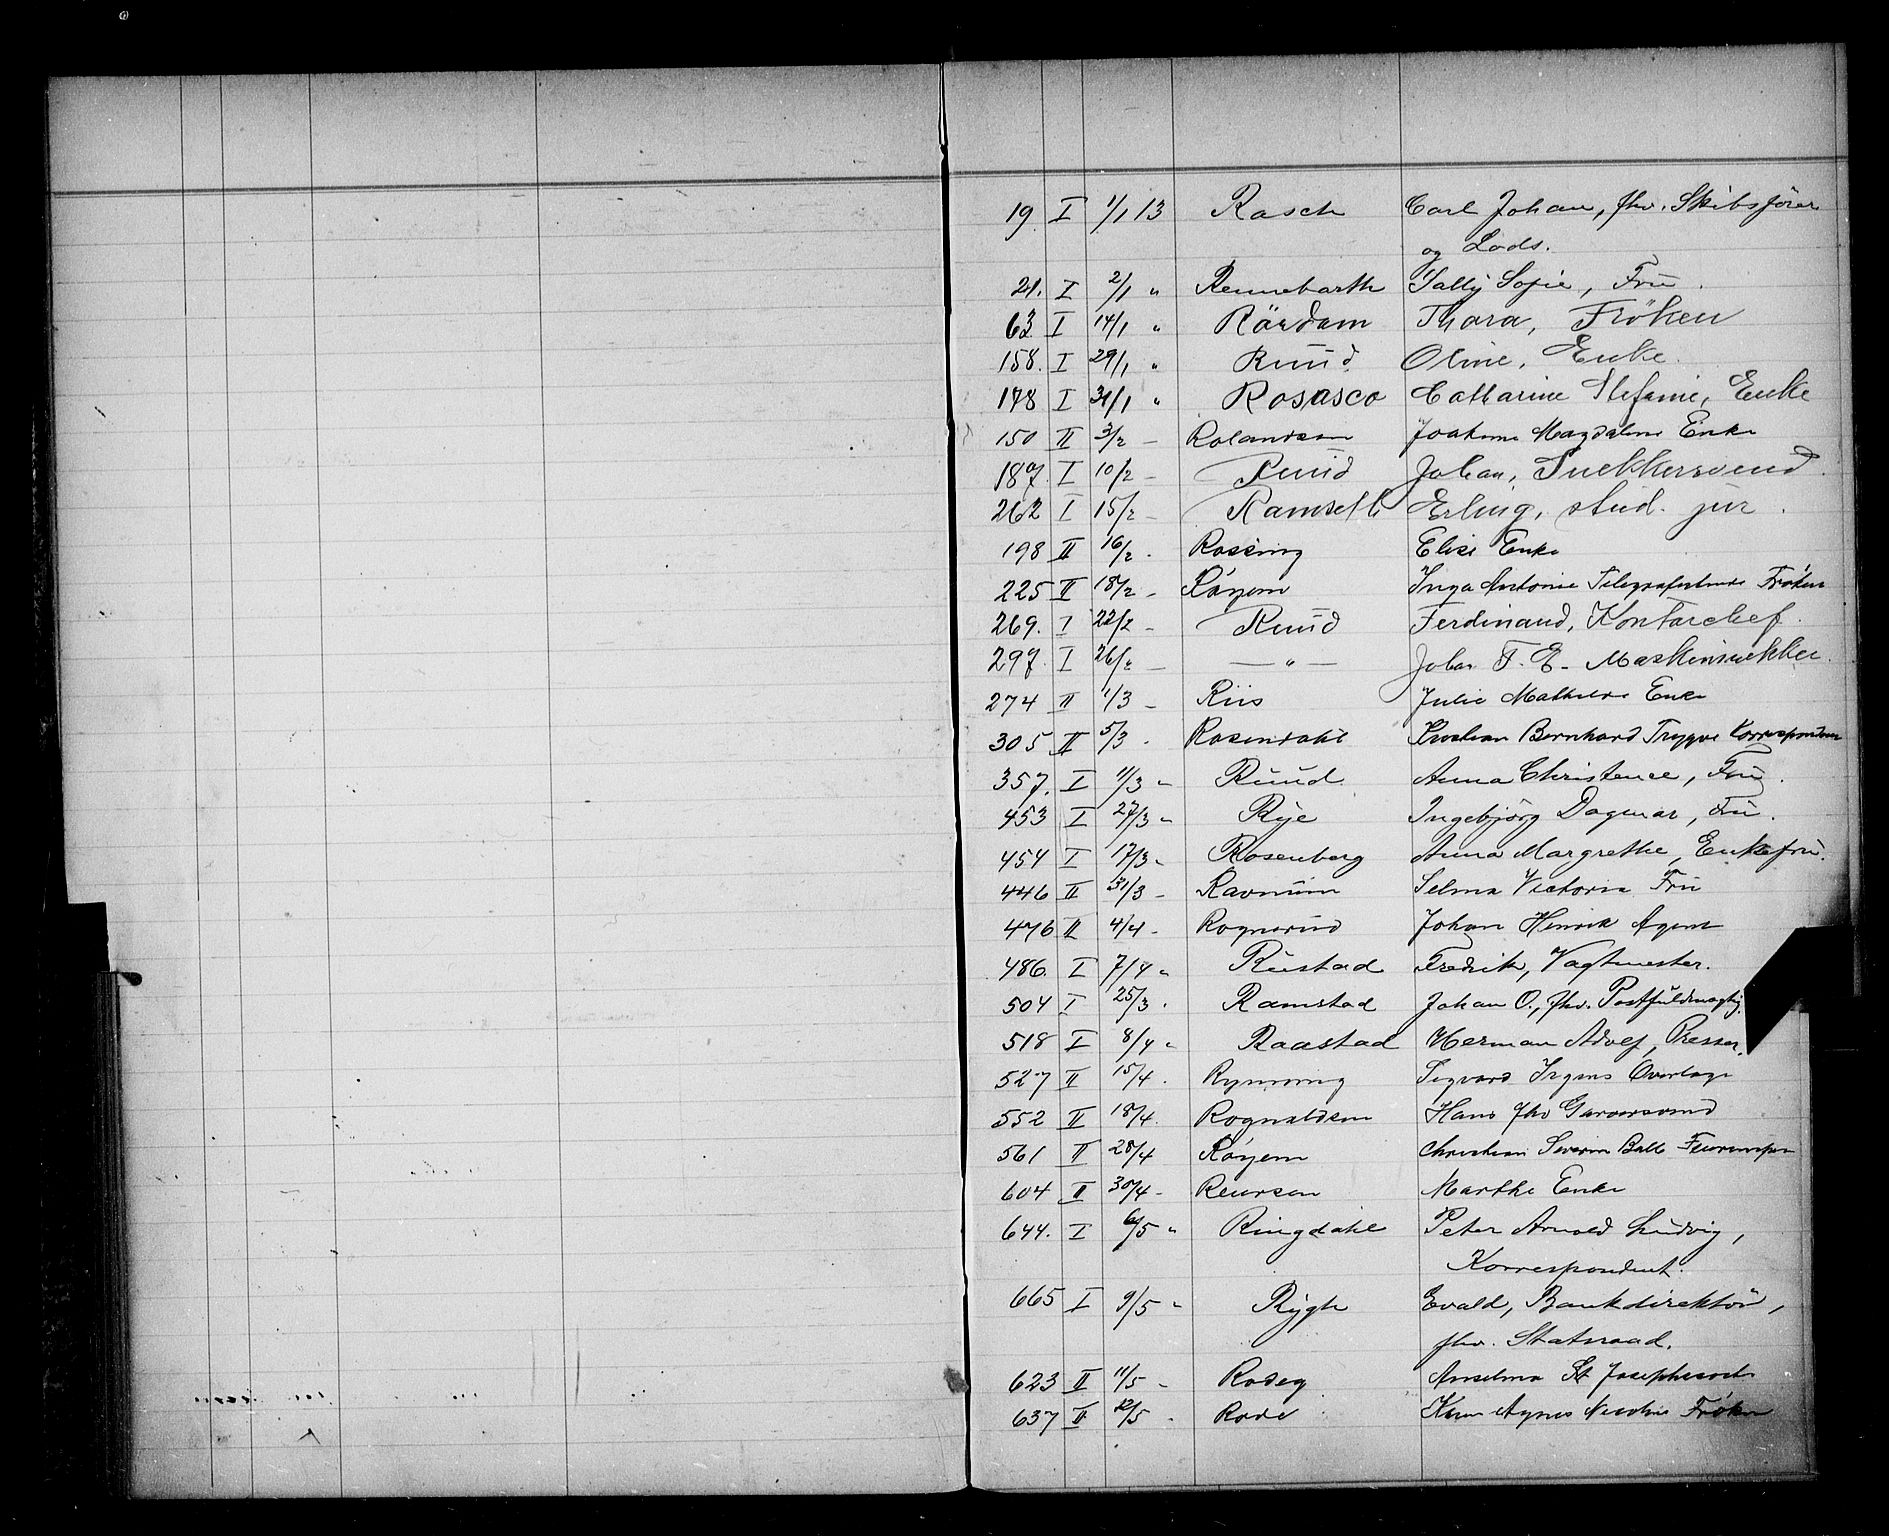 19 I 1/1 13 Rasch Carl Johan, fhv. Skibsfører
og Lods.
21. I 2/1 " Rennebarth Sally Sofie, Fru.
63 I 14/1 " Rördam Thora, Fröken
158. I 29/1 " Ruud Oline, Enke.
178 I 31/1 " Rosasco Catharine Stefanie, Enke
150 II 3/2 - Rolandsen Joakime Magdalene Enke
187. I 10/2 - Ruud Johan, Snekkersvend.
262 I 15/2 - Ramseth Erling, stud. jur.
198 II 16/2 - Rossing Elise Enke
225 II 18/2 - Röyem Inga Antonie Telegrafistinde Frøken
269. I 22/2 - Ruud Ferdinand, Kontorchef.
297. I 26/2 - — " — Johan F. E. Maskinsnekker.
274 II 1/3 - Riis Julie Mathilde Enke
305 II 5/3 - Rosendahl Kristian Bernhard Trygve Korrespondent
357. I 11/3 " Ruud Anna Christence, Fru.
453 I 27/3 " Rye Ingebjörg Dagmar, Fru.
454 I 17/3 " Rosenberg Anna Margrethe, Enkefru.
446 II 31/3 - Ravnum Selma Victoria Fru
476 II 4/4 - Rognerud Johan Henrik Agent
486. I 7/4 " Rustad Fredrik, Vagtmester.
504 I 25/3 " Ramstad Johan O., fhv. Postfuldmægtig.
518 I 8/4 " Raastad Herman Adolf, Presser.
527 II 15/4. Rynning Sigvard Irgens Overlæge
552 II 18/4. Rognaldsen Hans fhv Garversvend
561 II 28/4 Röyem Christian Severin Balle
604 II 30/4 - Reierson Marthe Enke
644. I 6/5 " Ringdahl Peter Arnold Ludvig,
Korrespondent.
665 I 9/5 " Rygh Evald, Bankdirektör,
fhv. Statsraad.
623 II 11/5 - Rodeg Anselma St Josephsøst
637 II 12/5 - Rode Agnes Nicoline Frøken